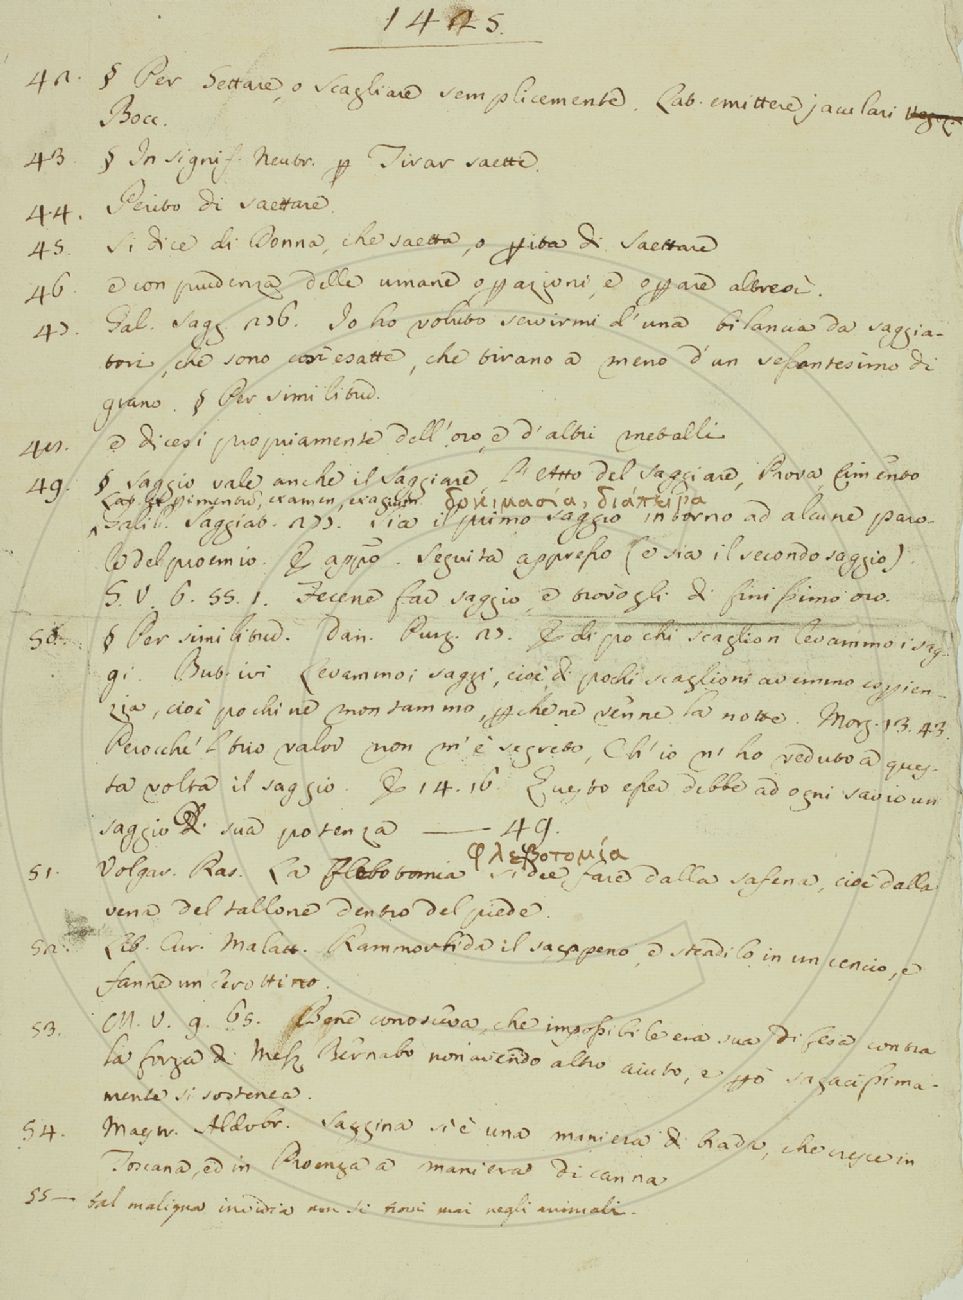 1425.
42. § Per Gettare, o scagliare semplicemente. Lat. emittere jaculari
Bocc.
43 § In signif. Neutr. p Tirar saette.
44. Perito di saettare.
45. Si dice di Donna, che saetta, o p di Saettare
46. e con prudenza delle umane oppazioni, e oppare altresì.
47. Gal. Sagg. 276. Io ho voluto servirmi d'una bilancia da saggia-
tori, che sono così esatte, che tirano a meno d'un sessantesimo di
grano. § Per similitud.
48. e dicesi propriamente dell'oro, e d'altri metalli
49. § saggio vale anche il Saggiare, l'Atto del Saggiare, Prova, Cimento
Lat. experimentum, examen, exagium δοκιμασία, διαπείρα
Galil. Saggiat. 277. Sia il primo saggio intorno ad alcune paro-
le del proemio. E appò. Seguita appresso (e sia il secondo saggio).
G. V. 6. 55. 1. Fecene far saggio, e trovogli di finissimo oro.
50. § Per similitud. Dan. Purg. 27. E di pochi scaglion levammo i sag-
gi. But. ivi Levammo i saggi, cioè di pochi scaglioni avemmo esperien-
zia, cioè pochi ne montammo, pchè ne venne la notte. Morg. 13. 43.
Perocchè 'l tuo valor non m'è segreto, Ch'io n'ho veduto a ques-
ta volta il saggio. E 14. 16. Questo esser debbe ad ogni savio un
saggio Di sua potenza — 49.
φλεβοτομία
51. Volgar. Ras. La Flebotomia si dee fare dalla safena, cioè dalla
vena del tallone dentro del piede.
52. Lib. Cur. Malatt. Rammorbida il sagapeno, e stendilo in un cencio, e
fanne un cerottino.
53. M. V. 9. 65. Bene conosceva, che impossibile era sua difesa contra
la forza di Mess. Bernabò non avendo altro aiuto, e ppò sagacissima-
mente si sostenea.
54. Maestr. Aldobr. Saggina si è una maniera di biada, che cresce in
Toscana, ed in Proenza a maniera di canna
55 — tal maligna invidia non si trovi mai negli animali.